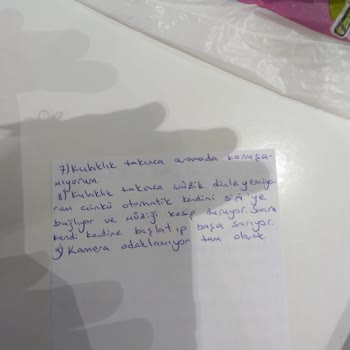 7) Kulaklık takınca aramada konuşa-
mıyorum.
8) Kulaklık takınca müzik dinleyemiyo-
rum çünkü otomatik kendini siri'ye
bağlıyor ve müziği kesip duruyor. Sonra
kendi kendine başlatıp başa sarıyor.
9) Kamera odaklamıyor tam olarak.